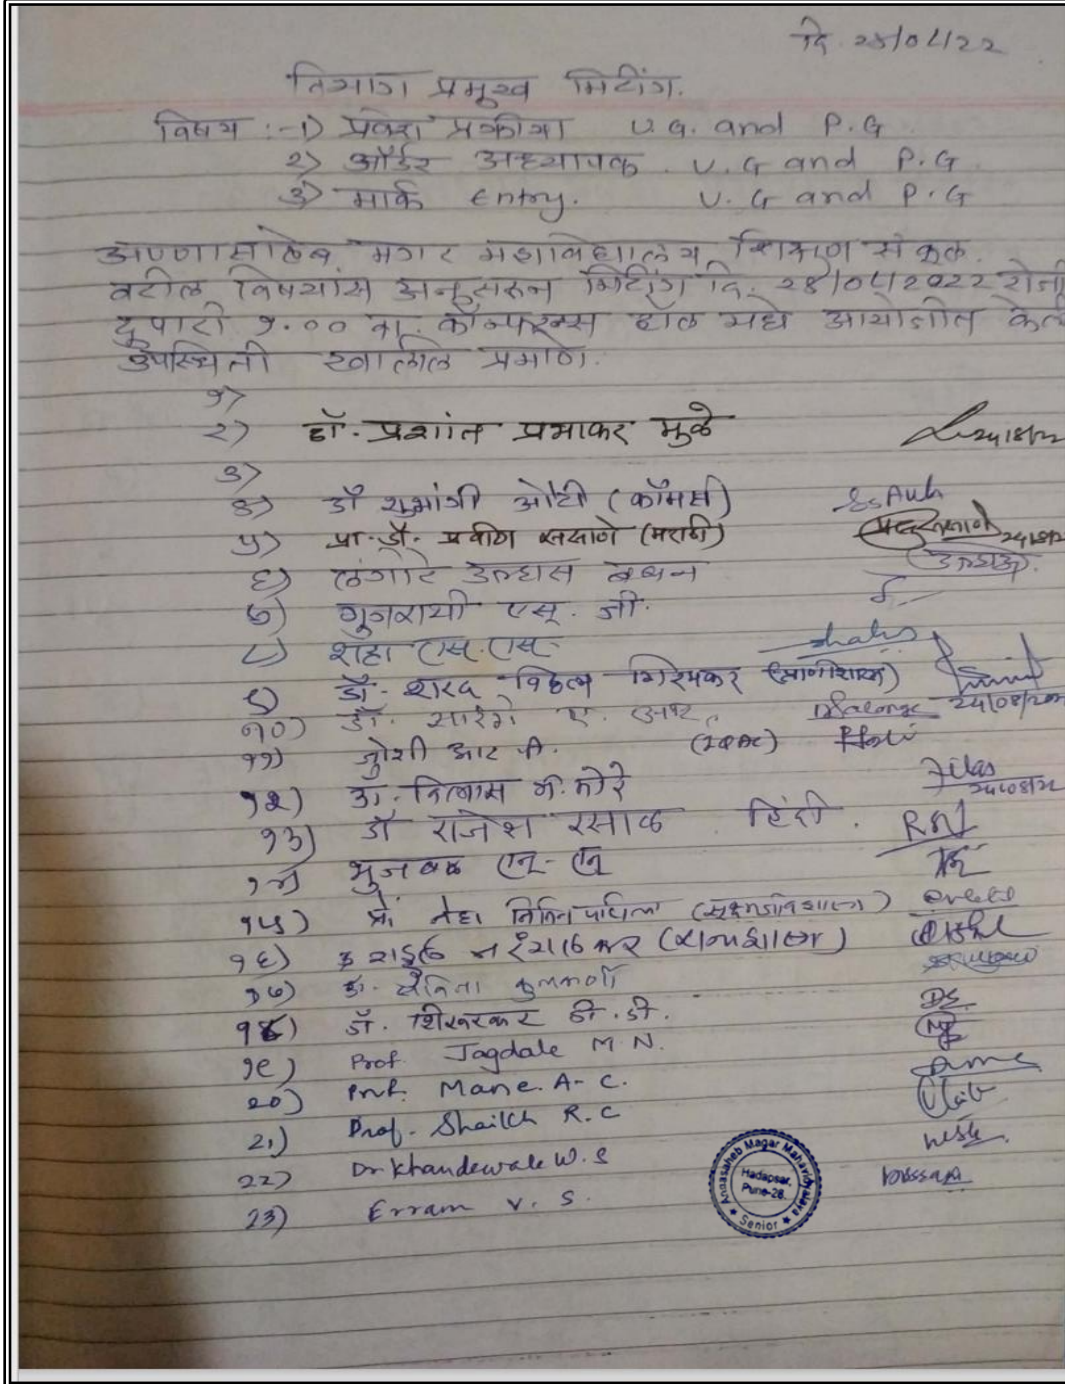 दि. २४/०८/२२
विभाग प्रमुख मिटींग.
विषय :-१) प्रवेश प्रक्रीया U.G. and P.G
२) ऑर्डर अध्यापक. U.G and P.G
३) मार्क entry. U.G and P.G
अण्णासाहेब मगर महाविद्यालय, शिक्षण संकुल.
वरील विषयांस अनुसरून मिटिंग दि. २४/०८/२०२२ रोजी
दुपारी १.०० वा. कॉन्फरन्स हॉल मधे आयोजीत केली
उपस्थिती खालील प्रमाणे.
१)
२) डॉ. प्रशांत प्रभाकर मुळे 24/8/22
३)
४) डॉ शुभांगी औटी (कॉमर्स)
५) प्रा. डॉ. प्रवीण ससाणे (मराठी) 24/8/2
६) लंगोटे उल्हास बबन
७) गुजराथी एस. जी.
८) शहा एस. एस.
९) डॉ. शरद विठ्ठल गिरमकर (प्राणीशास्त्र) 24/08/202
१०) डॉ. सारंग ए.
११) जोशी आर. पी. (IQAC)
१२) डॉ. विलास मोरे 24/08/22
१३) डॉ राजेश रसाळ हिंदी.
१४) भुजबळ एन. एन
१५) प्रो. नेहा नितिन पाटील (सूक्ष्मजीवशास्त्र)
१६)
१७) डॉ. कुलकर्णी
१८) डॉ. शिरूरकर डी. डी.
१९) Prof. Jagdale M.N.
20) Prof. Mane. A. C.
21) Prof. Shaikh R. C
22) Dr Khandewale W. S
23) Erram V. S.
Annasaheb Magar Mahavidyalaya
Hadapsar,
Pune-28.
Senior